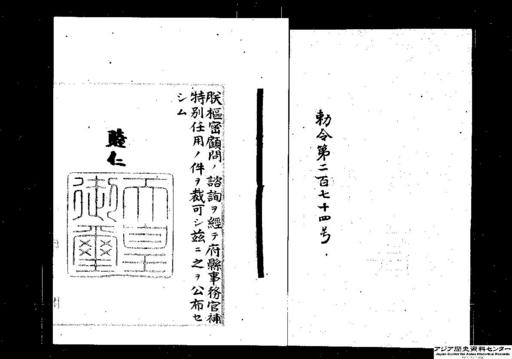 勅令第二百七十四号
朕樞密顧問ノ諮詢ヲ経テ府縣事務官補
特別任用ノ件ヲ裁可シ茲ニ之ヲ公布セ
シム
睦仁
天皇
御璽
アジア歴史資料センター
Japan Center for Asian Historical Records